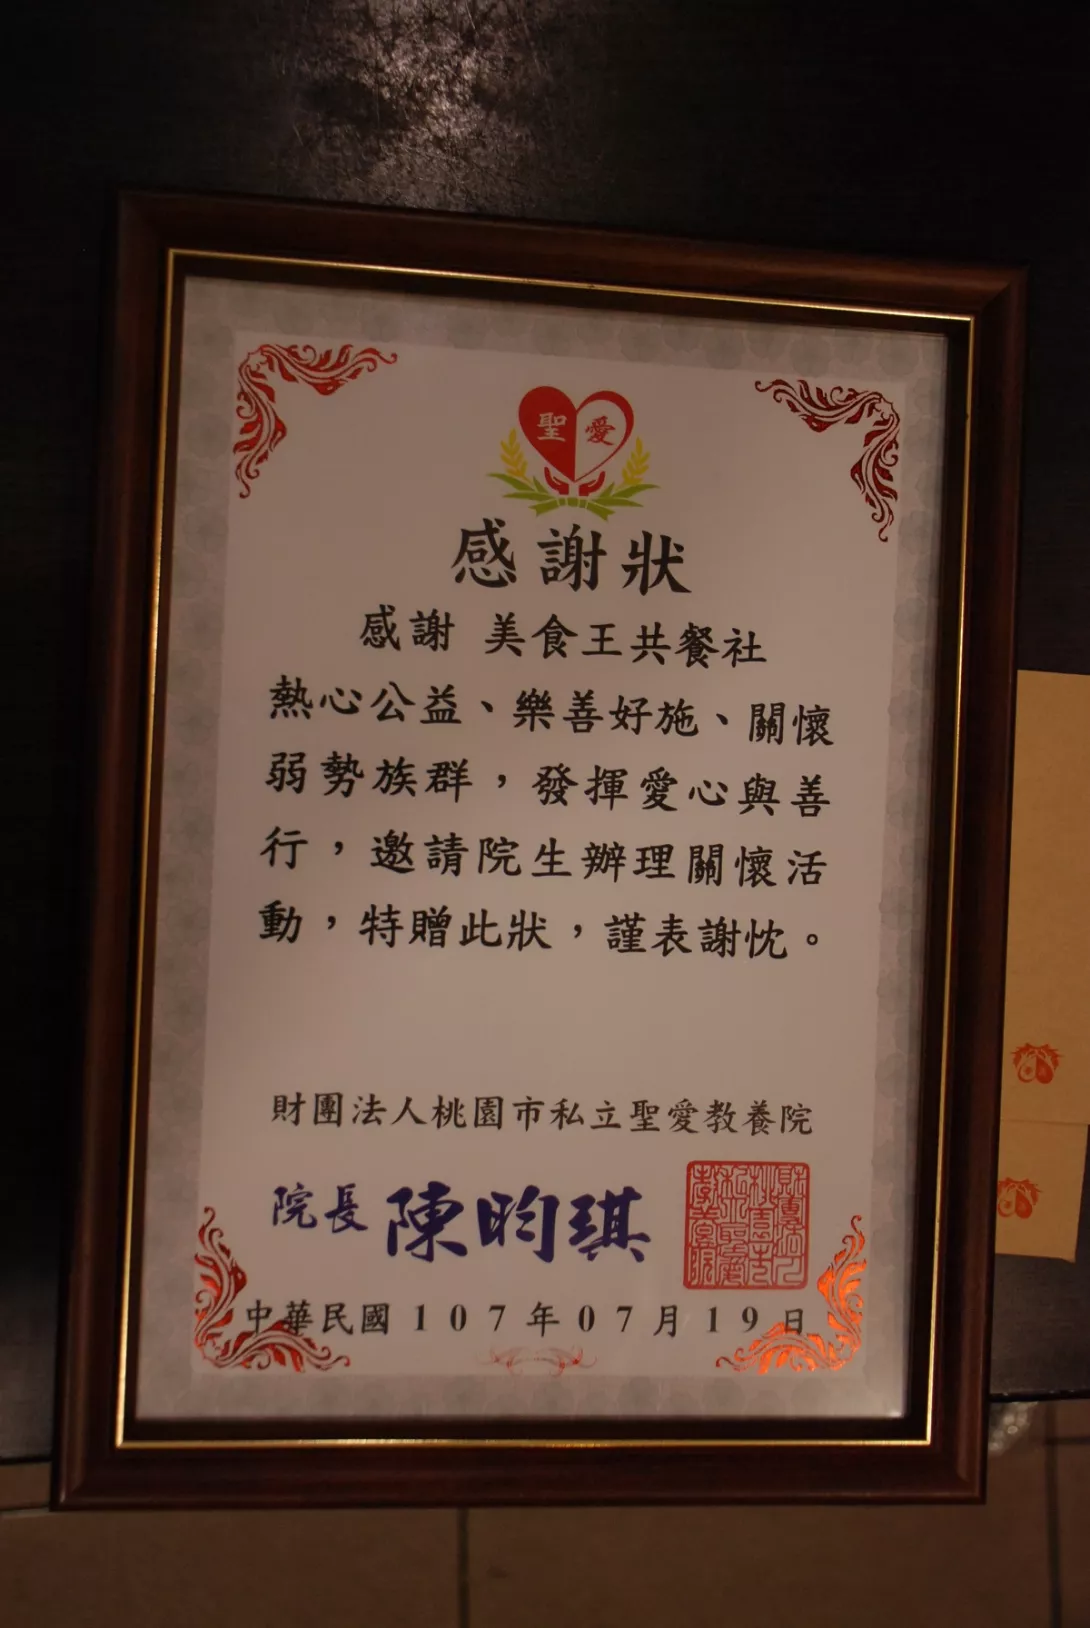 聖愛
感謝狀
感謝 美食王共餐社
熱心公益、樂善好施、關懷
弱勢族群，發揮愛心與善
行，邀請院生辦理關懷活
動，特贈此狀，謹表謝忱。
財團法人桃園市私立聖愛教養院
院長 陳昀琪
中華民國107年07月19日